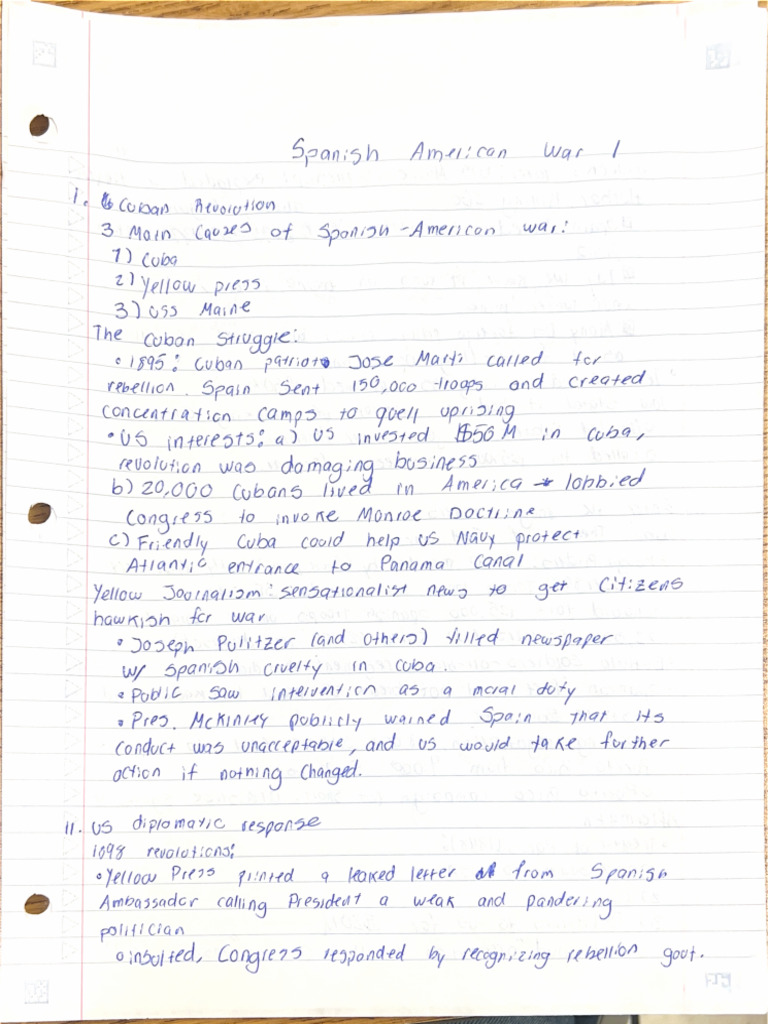 Spanish American War 1
I. Cuban Revolution
3 Main Causes of Spanish-American war:
1) Cuba
2) Yellow press
3) USS Maine
The Cuban Struggle:
• 1895: Cuban patriot Jose Marti called for
rebellion. Spain sent 150,000 troops and created
concentration camps to quell uprising
• US interests: a) US invested $50M in Cuba,
revolution was damaging business
b) 20,000 Cubans lived in America → lobbied
Congress to invoke Monroe Doctrine
c) Friendly Cuba could help US Navy protect
Atlantic entrance to Panama Canal
Yellow Journalism: sensationalist news to get citizens
hawkish for war
• Joseph Pulitzer (and others) filled newspaper
w/ Spanish cruelty in Cuba.
• Public saw intervention as a moral duty
• Pres. McKinley publicly warned Spain that its
conduct was unacceptable, and US would take further
action if nothing changed.
II. US diplomatic response
1898 revolutions:
• Yellow Press printed a leaked letter from Spanish
Ambassador calling President a weak and pandering
politician
○ insulted, Congress responded by recognizing rebellion govt.